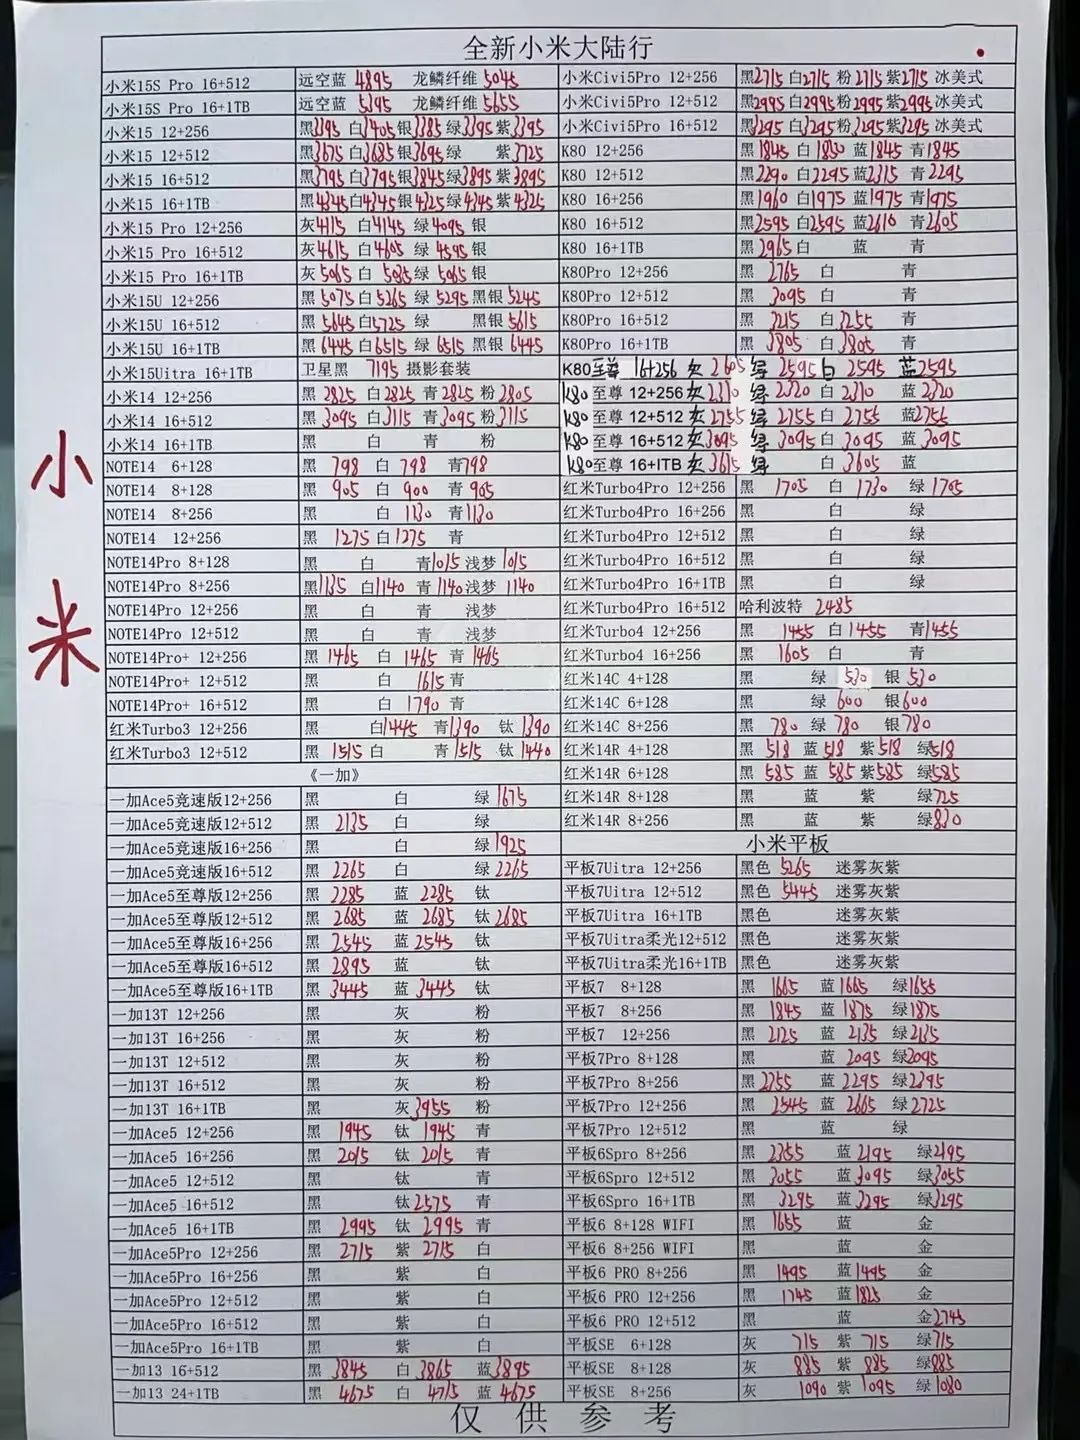 全新小米大陆行
小米15S Pro 16+512 远空蓝 4895 龙鳞纤维 5045 小米Civi5Pro 12+256 黑2715 白2715 粉2715 紫2715 冰美式
小米15S Pro 16+1TB 远空蓝 5395 龙鳞纤维 5655 小米Civi5Pro 12+512 黑2995 白2995 粉2995 紫2995 冰美式
小米15 12+256 黑3395 白3405 银3385 绿3395 紫3395 小米Civi5Pro 16+512 黑3295 白3295 粉3295 紫3295 冰美式
小米15 12+512 黑3675 白3685 银3695 绿 紫3725 K80 12+256 黑1845 白1830 蓝1845 青1845
小米15 16+512 黑3795 白3795 银3845 绿3895 紫3895 K80 12+512 黑2290 白2295 蓝2315 青2295
小米15 16+1TB 黑4345 白4345 银4325 绿4345 紫4325 K80 16+256 黑1960 白1975 蓝1975 青1975
小米15 Pro 12+256 灰4115 白4145 绿4095 银 K80 16+512 黑2595 白2595 蓝2610 青2605
小米15 Pro 16+512 灰4615 白4605 绿4595 银 K80 16+1TB 黑2965 白 蓝 青
小米15 Pro 16+1TB 灰5065 白 5085 绿 5065 银 K80Pro 12+256 黑 2765 白 青
小米15U 12+256 黑 5075 白5265 绿 5295 黑银 5245 K80Pro 12+512 黑 3095 白 青
小米15U 16+512 黑 5645 白5725 绿 黑银 5615 K80Pro 16+512 黑 3215 白 3255 青
小米15U 16+1TB 黑 6445 白6515 绿 6515 黑银 6445 K80Pro 16+1TB 黑 3805 白 3805 青
小米15Uitra 16+1TB 卫星黑 7195 摄影套装 K80至尊 16+256 灰 2605 绿 2595 白 2595 蓝2595
小米14 12+256 黑 2825 白 2825 青 2825 粉 2805 K80至尊 12+256 灰2310 绿 2320 白 2310 蓝 2320
小米14 16+512 黑 3095 白 3115 青 3095 粉 3115 K80至尊 12+512 灰2755 绿 2755 白 2755 蓝2755
小米14 16+1TB 黑 白 青 粉 K80至尊 16+512 灰3095 绿 3095 白 3095 蓝 3095
NOTE14 6+128 黑 798 白 798 青798 K80至尊 16+ITB 灰3615 绿 白 3605 蓝
NOTE14 8+128 黑 905 白 900 青 905 红米Turbo4Pro 12+256 黑 1705 白 1730 绿 1705
NOTE14 8+256 黑 白 1130 青1130 红米Turbo4Pro 16+256 黑 白 绿
NOTE14 12+256 黑 1275 白 1275 青 红米Turbo4Pro 12+512 黑 白 绿
NOTE14Pro 8+128 黑 白 青1015 浅梦 1015 红米Turbo4Pro 16+512 黑 白 绿
NOTE14Pro 8+256 黑1135 白1140 青 1140 浅梦 1140 红米Turbo4Pro 16+1TB 黑 白 绿
NOTE14Pro 12+256 黑 白 青 浅梦 红米Turbo4Pro 16+512 哈利波特 2485
NOTE14Pro 12+512 黑 白 青 浅梦 红米Turbo4 12+256 黑 1455 白 1455 青1455
NOTE14Pro+ 12+256 黑 1465 白 1465 青 1465 红米Turbo4 16+256 黑 1605 白 青
NOTE14Pro+ 12+512 黑 白 1615 青 红米14C 4+128 黑 绿 530 银 530
NOTE14Pro+ 16+512 黑 白 1790 青 红米14C 6+128 黑 绿 600 银600
红米Turbo3 12+256 黑 白1445 青1390 钛 1390 红米14C 8+256 黑 780 绿 780 银780
红米Turbo3 12+512 黑 1515 白 青 1515 钛 1440 红米14R 4+128 黑 518 蓝 518 紫518 绿518
《一加》 红米14R 6+128 黑 585 蓝 585 紫585 绿585
一加Ace5竞速版12+256 黑 白 绿 1675 红米14R 8+128 黑 蓝 紫 绿725
一加Ace5竞速版12+512 黑 2135 白 绿 红米14R 8+256 黑 蓝 紫 绿830
一加Ace5竞速版16+256 黑 白 绿 1925 小米平板
一加Ace5竞速版16+512 黑 2265 白 绿 2265 平板7Uitra 12+256 黑色 5265 迷雾灰紫
一加Ace5至尊版12+256 黑 2285 蓝 2285 钛 平板7Uitra 12+512 黑色 5445 迷雾灰紫
一加Ace5至尊版12+512 黑 2685 蓝 2685 钛 2685 平板7Uitra 16+1TB 黑色 迷雾灰紫
一加Ace5至尊版16+256 黑 2545 蓝 2545 钛 平板7Uitra柔光12+512 黑色 迷雾灰紫
一加Ace5至尊版16+512 黑 2895 蓝 钛 平板7Uitra柔光16+1TB 黑色 迷雾灰紫
一加Ace5至尊版16+1TB 黑 3445 蓝 3445 钛 平板7 8+128 黑 1665 蓝 1665 绿1655
一加13T 12+256 黑 灰 粉 平板7 8+256 黑 1845 蓝 1875 绿1875
一加13T 16+256 黑 灰 粉 平板7 12+256 黑 2125 蓝 2135 绿2135
一加13T 12+512 黑 灰 粉 平板7Pro 8+128 黑 蓝 2095 绿2095
一加13T 16+512 黑 灰 粉 平板7Pro 8+256 黑 2255 蓝 2295 绿2295
一加13T 16+1TB 黑 灰3955 粉 平板7Pro 12+256 黑 2545 蓝 2665 绿2725
一加Ace5 12+256 黑 1945 钛 1945 青 平板7Pro 12+512 黑 蓝 绿
一加Ace5 16+256 黑 2015 钛 2015 青 平板6Spro 8+256 黑 2355 蓝2195 绿2195
一加Ace5 12+512 黑 钛 青 平板6Spro 12+512 黑 3055 蓝 3095 绿3055
一加Ace5 16+512 黑 钛 2575 青 平板6Spro 16+1TB 黑 3295 蓝 3295 绿3295
一加Ace5 16+1TB 黑 2995 钛 2995 青 平板6 8+128 WIFI 黑 1655 蓝 金
一加Ace5Pro 12+256 黑 2715 紫 2715 白 平板6 8+256 WIFI 黑 蓝 金
一加Ace5Pro 16+256 黑 紫 白 平板6 PRO 8+256 黑 1495 蓝1495 金
一加Ace5Pro 12+512 黑 紫 白 平板6 PRO 12+256 黑 1745 蓝1825 金
一加Ace5Pro 16+512 黑 紫 白 平板6 PRO 12+512 黑 蓝 金2745
一加Ace5Pro 16+1TB 黑 紫 白 平板SE 6+128 灰 715 紫 715 绿715
一加13 16+512 黑 3845 白 3865 蓝3895 平板SE 8+128 灰 885 紫 885 绿885
一加13 24+1TB 黑 4675 白 4715 蓝 4675 平板SE 8+256 灰 1090 紫 1095 绿 1080
仅供参考
小米